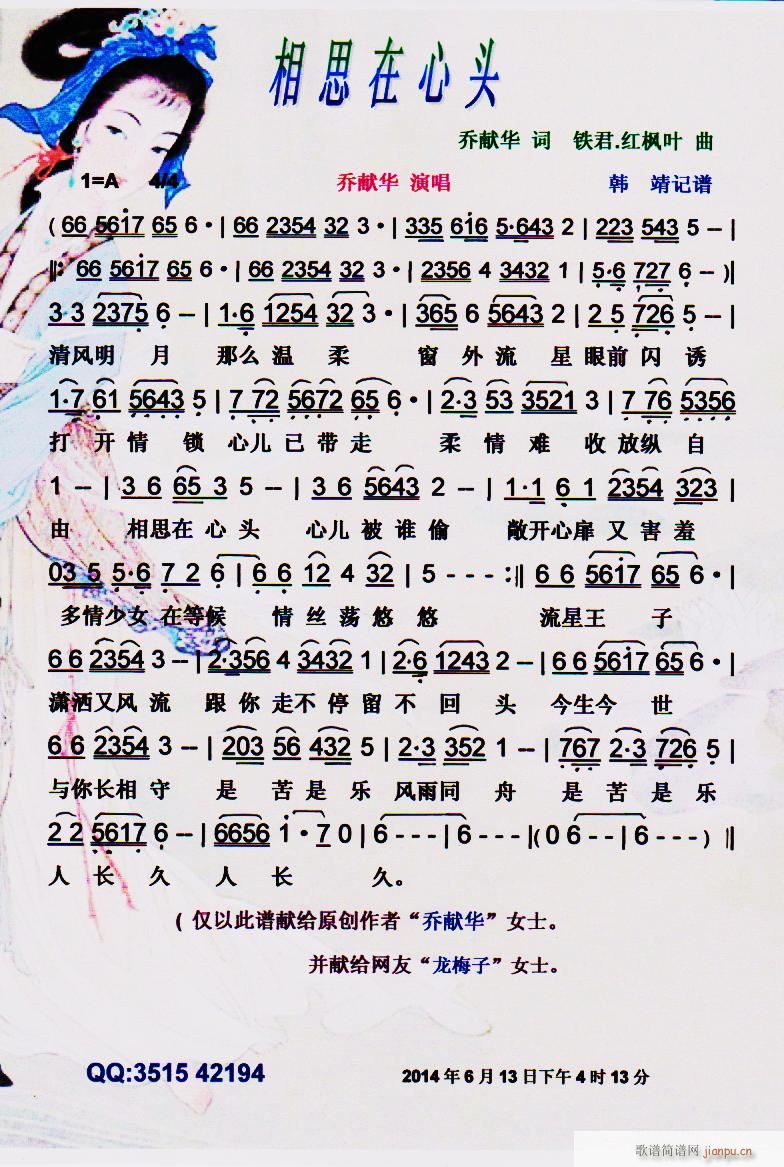 相思在心头
乔献华 词 铁君.红枫叶 曲
1=A 4/4 乔献华 演唱 韩 靖记谱
( 66 5617 65 6 · | 66 2354 32 3 · | 335 616 5·643 2 | 223 543 5 -- |
‖: 66 5617 65 6 · | 66 2354 32 3 · | 2356 4 3432 1 | 5·6 727 6 -- )|
3 3 2375 6 -- | 1·6 1254 32 3 · | 365 6 5643 2 | 2 5 726 5 -- |
清风明 月 那么温 柔 窗 外流 星眼前闪诱
1·7 61 5643 5 | 7 72 5672 65 6 · | 2·3 53 3521 3 | 7 76 5356
打 开情 锁 心儿已带走 柔情难 收放纵自
1 -- | 3 6 65 3 5 -- | 3 6 5643 2 -- | 1·1 6 1 2354 323 |
由 相思在心头 心儿被谁偷 敞开心扉又害羞
03 5 5·6 7 2 6 | 6 6 12 4 32 | 5 - - - :‖ 6 6 5617 65 6 · |
多情少女在等候 情丝荡悠悠 流星王 子
6 6 2354 3 -- | 2·356 4 3432 1 | 2·6 1243 2 -- | 6 6 5617 65 6 · |
潇洒又风流 跟你走不停留不 回 头 今生今 世
6 6 2354 3 -- | 203 56 432 5 | 2·3 352 1 -- | 767 2·3 726 5 |
与你长相守 是 苦是乐 风雨同 舟 是 苦是乐
2 2 5617 6 -- | 6656 1 · 7 0 | 6 - - - | 6 - - - | ( 0 6 - - | 6 - - - ) ‖
人 长 久 人 长 久。
( 仅以此谱献给原创作者“乔献华”女士。
并献给网友“龙梅子”女士。
QQ:3515 42194 2014 年 6 月 13 日下午 4 时 13 分
歌谱简谱网 jianpu.cn